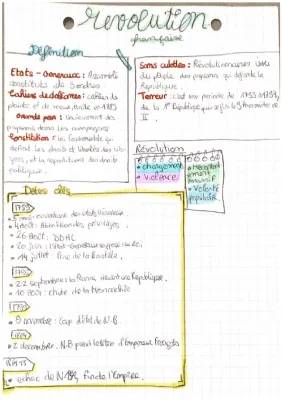 Revolution
française
Définition
Etats-Generaux : Assemblé
constitués de 3 ordres
Cahiers de doléances : cahiers de
plainte et de
Grande peur : soulèvement des
paysans dans les campagnes
Constitution :
définit les droits et libertés des
et la répartition des droits
publique.
Sans culottes : Révolutionnaires issus
du peuple des paysans qui défend la
Republique.
Terreur : c'est une période de 1793-1794,
de la 1° République
II
Révolution
changement
Violence
Volonté
populaire
Dates clés
1789
5 mai : ouverture des états Généraux
4 Août : Abolition des privilèges.
26 Août : DDHC
20 juin :
14 juillet : Prise de la Bastille.
22 septembre : la France devient une République.
10 Août : chute de la Monarchie
9 novembre : Coup d'état de N.B.
1804
2 decembre : N.B prend le titre d'Empereur Français
1815
echec de N.B, fin de l'Empire.